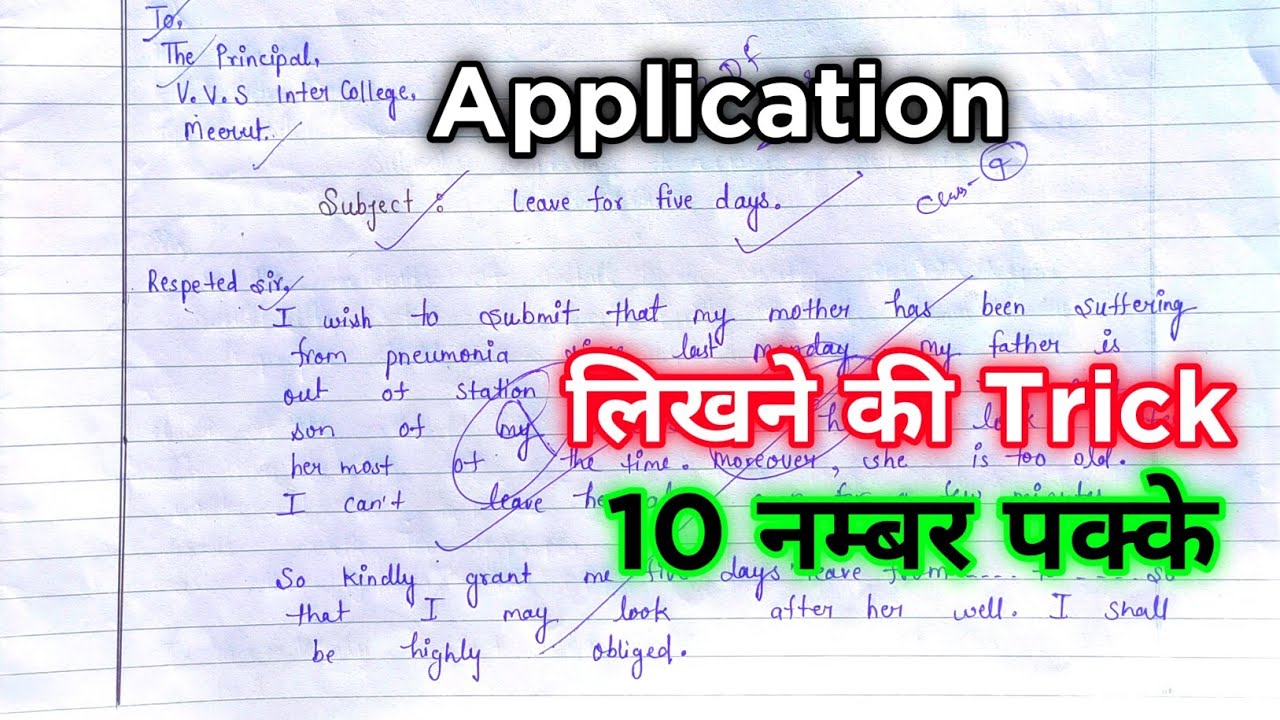 To,
The Principal,
V.V.S Inter College,
Meerut.
Application
Subject : Leave for five days.
Class- 9
Respeted sir,
I wish to submit that my mother has been suffering
from pneumonia last monday my father is
out of station
son of my
लिखने की Trick
her most of the time. Moreover, she is too old.
I can't leave
10 नम्बर पक्के
So kindly grant me five days leave from
that I may look after her well. I shall
be highly obliged.